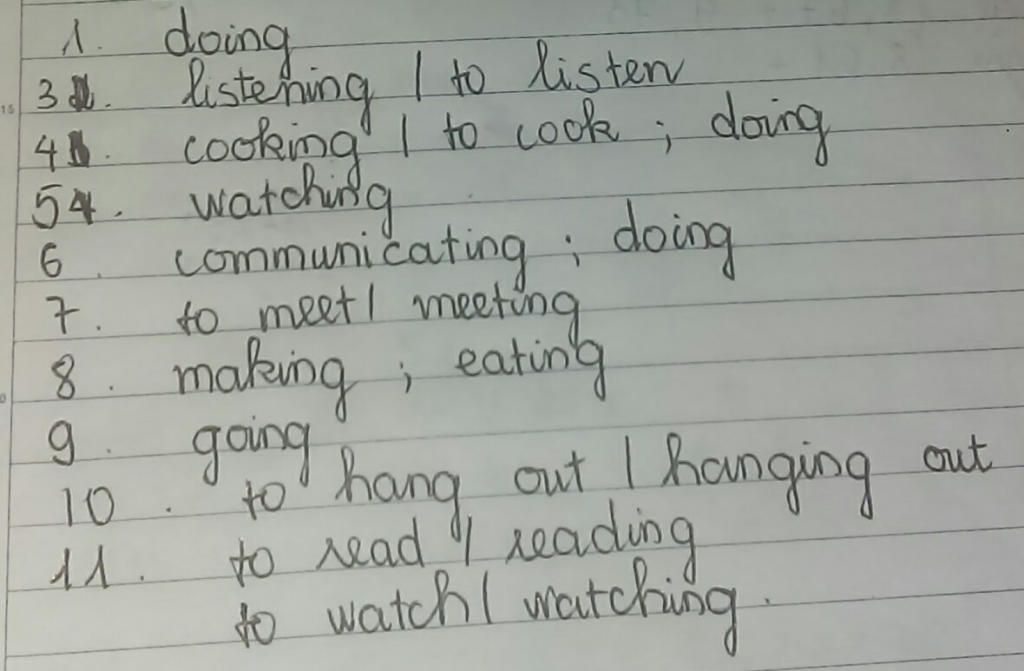 1. doing
3. listening / to listen
4. cooking / to cook ; doing
5. watching
6. communicating ; doing
7. to meet / meeting
8. making ; eating
9. going
10. to hang out / hanging out
11. to read / reading
to watch / watching.